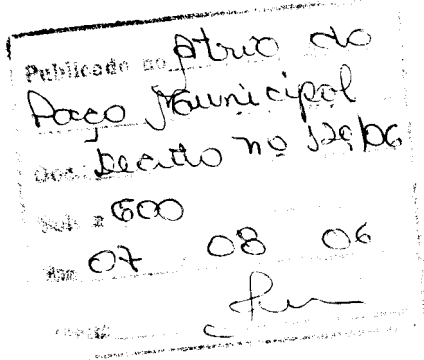 Publicado no Átrio do
Paço Municipal
Doc. Decreto nº 129/06
Sob nº 600
Em 07 08 06